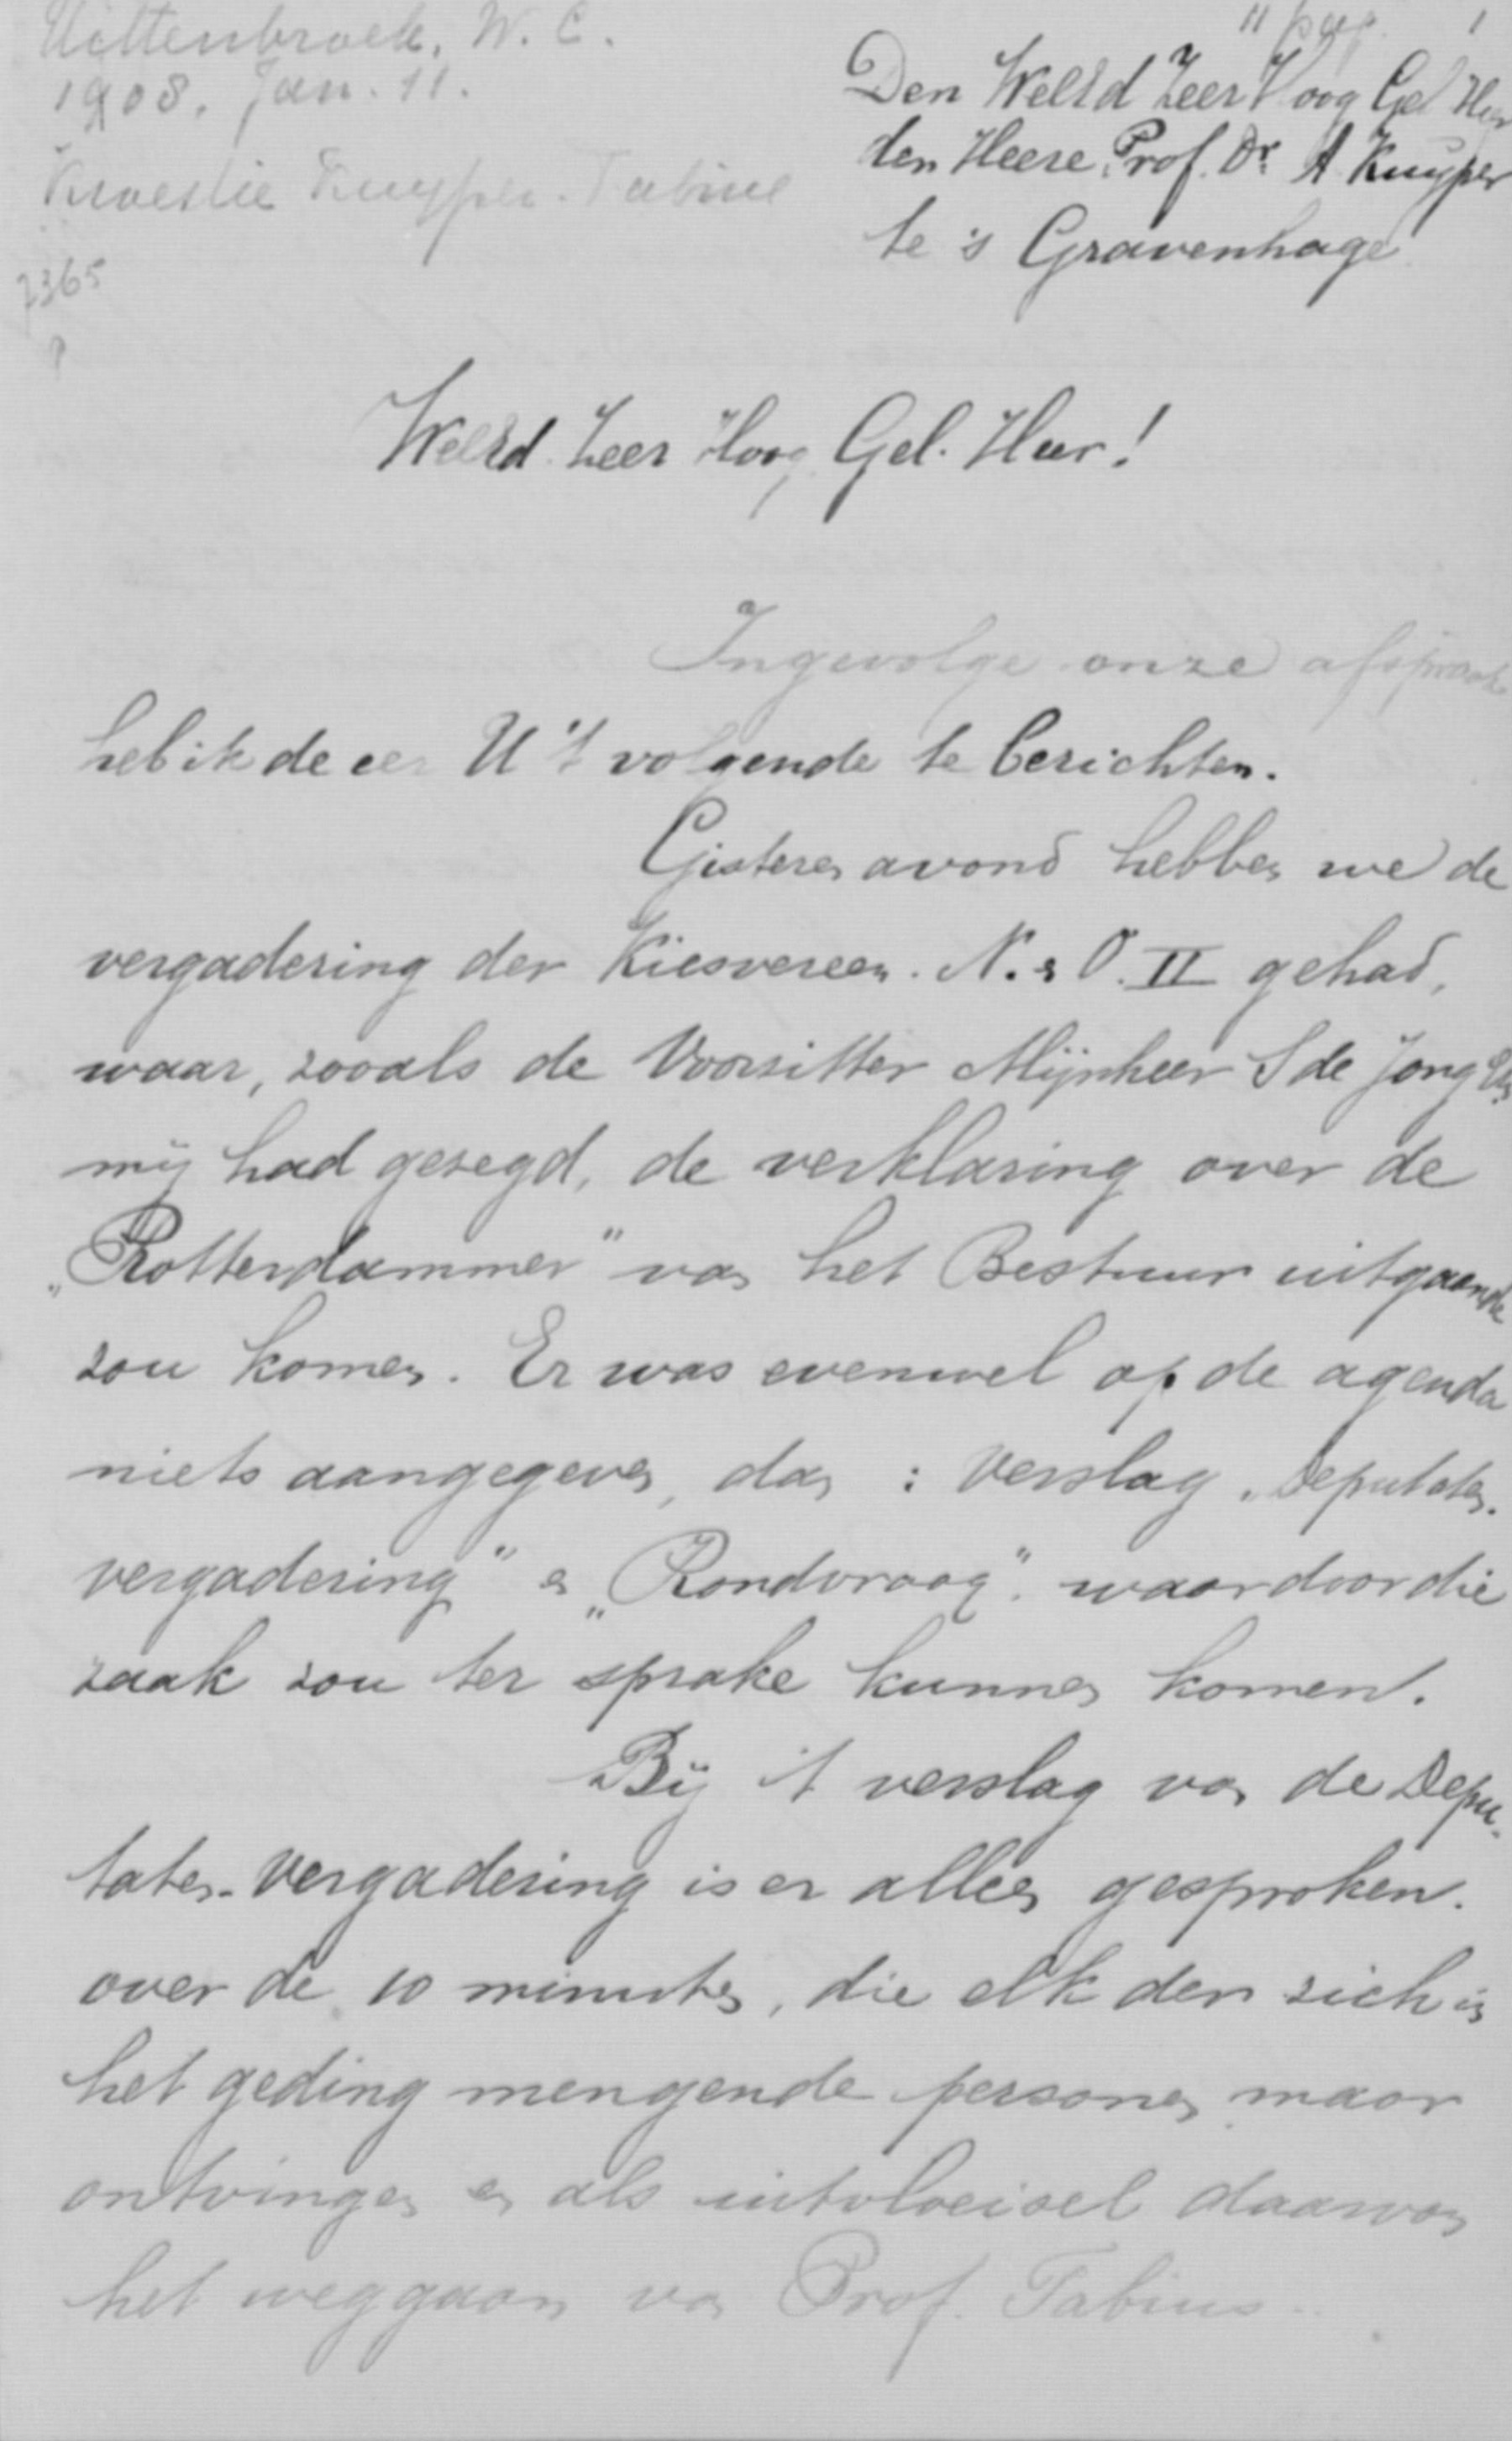 Uittenbroek, W. C.
1908. Jan. 11.
Kwestie Kuyper-Fabius
7365
P
11 pag. 1
Den WelEd Zeer Hoog Gel Heer
den Heere Prof. Dr. A Kuyper
te 's Gravenhage
WelEd. Zeer Hoog Gel. Heer!
Ingevolge onze afspraak
heb ik de eer U 't volgende te berichten.
Gisteren avond hebben we de
vergadering der Kiesvereen. N. en O. II gehad,
waar, zooals de Voorzitter Mijnheer S de Jong
mij had gezegd, de verklaring over de
„Rotterdammer" van het Bestuur uitgaande
zou komen. Er was evenwel op de agenda
niets aangegeven, dan : Verslag „Deputaten-
vergadering" en „Rondvraag". waardoor die
zaak zou ter sprake kunnen komen.
Bij 't verslag van de Depu-
taten-Vergadering is er alleen gesproken.
over de 10 minuten, die elk der zich in
het geding mengende personen maar
ontvingen en als uitvloeisel daarvan
het weggaan van Prof. Fabius.